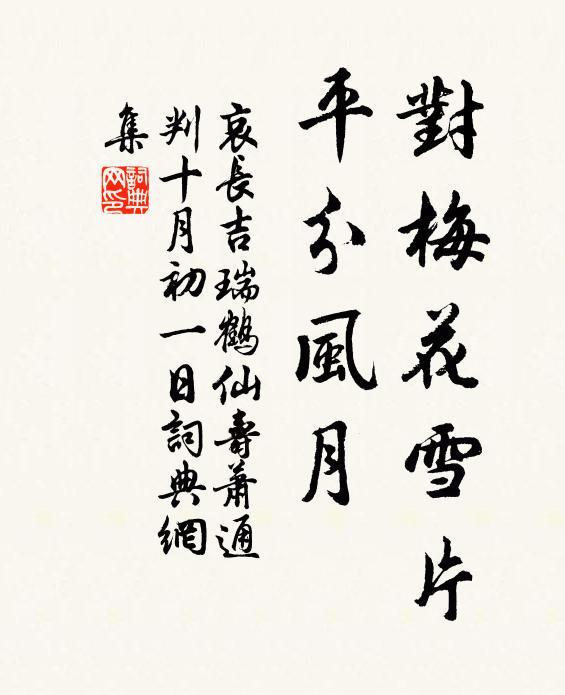 對梅花雪片
平分風月
哀長吉瑞鶴仙壽蕭通
判十月初一日詞典網
集
詞典
网印